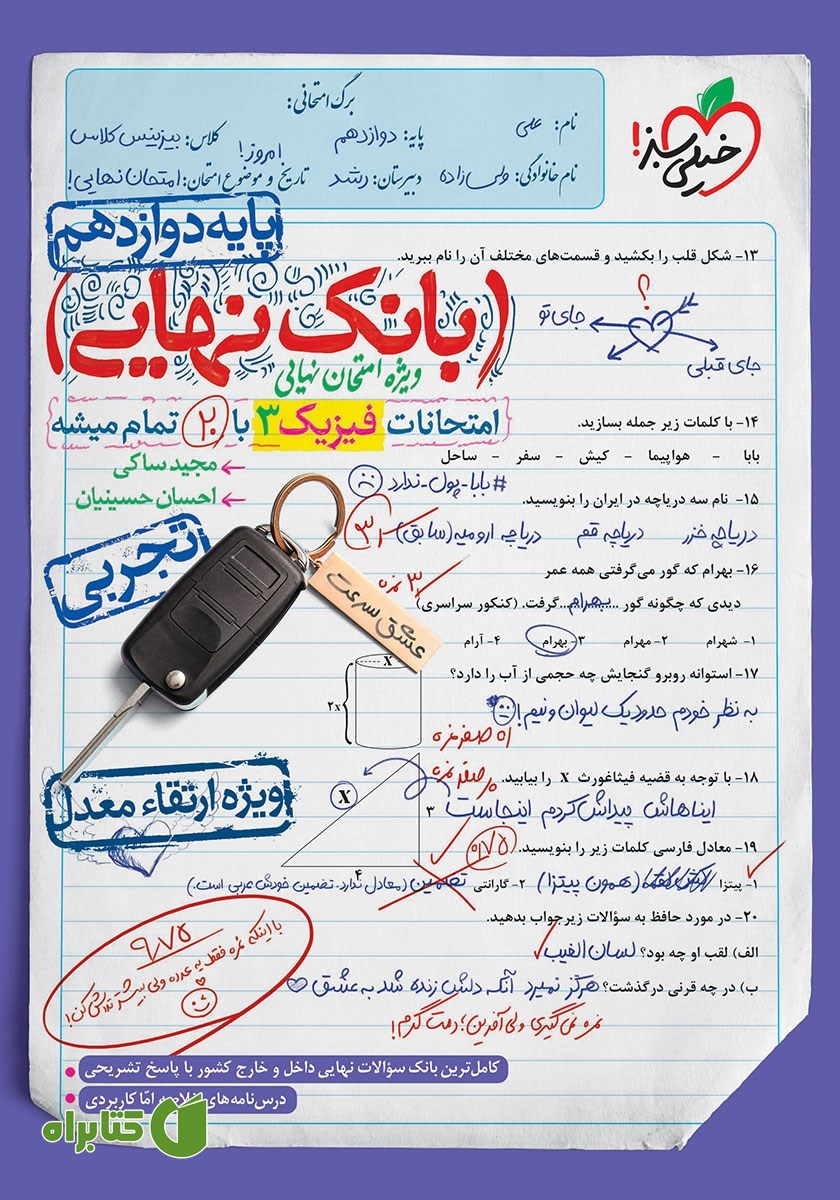 خیلی سبز!
برگ امتحانی:
نام: علی
پایه: دوازدهم
کلاس: بیزینس کلاس
نام خانوادگی: ولی زاده
دبیرستان: رشد
تاریخ و موضوع امتحان: امروز! امتحان نهایی!
پایه دوازدهم
(بانک نهایی)
ویژه امتحان نهایی
امتحانات فیزیک ۳ با ۲۰ تمام میشه
مجید ساکی
احسان حسینیان
تجربی
عشق سرعت
ویژه ارتقاء معدل
۱۳- شکل قلب را بکشید و قسمت‌های مختلف آن را نام ببرید.
؟
جای تو
جای قبلی
۱۴- با کلمات زیر جمله بسازید.
بابا - هواپیما - کیش - سفر - ساحل
#بابا_پول_ندارد
۱۵- نام سه دریاچه در ایران را بنویسید.
دریاچه خزر دریاچه قم دریاچه ارومیه (سابق)
۱۶- بهرام که گور می‌گرفتی همه عمر
دیدی که چگونه گور ....بهرام....گرفت. (کنکور سراسری)
۱- شهرام ۲- مهرام ۳- بهرام ۴- آرام
۱۷- استوانه روبرو گنجایش چه حجمی از آب را دارد؟
X
۲x
به نظر خودم حدود یک لیوان و نیم!
اه صفر نمره
۱۸- با توجه به قضیه فیثاغورث X را بیابید.
صفر نمره
ایناهاش پیداش کردم اینجاست
X
۳
۴
۱۹- معادل فارسی کلمات زیر را بنویسید.
۰/۷۵
۱- پیتزا (همون پیتزا) ۲- گارانتی تضمین (معادل ندارد. تضمین خودش عربی است.)
۲۰- در مورد حافظ به سؤالات زیر جواب بدهید.
الف) لقب او چه بود؟ لسان الغیب
ب) در چه قرنی درگذشت؟ هرگز نمیرد آنکه دلش زنده شد به عشق
نمره نمی‌گیری ولی آفرین؛ دمت گرم!
۹/۷۵
با اینکه نمره فقط یه عدده ولی بیشتر تلاش کن!
کامل‌ترین بانک سؤالات نهایی داخل و خارج کشور با پاسخ تشریحی
درس‌نامه‌های خلاصه امّا کاربردی
کتابراه